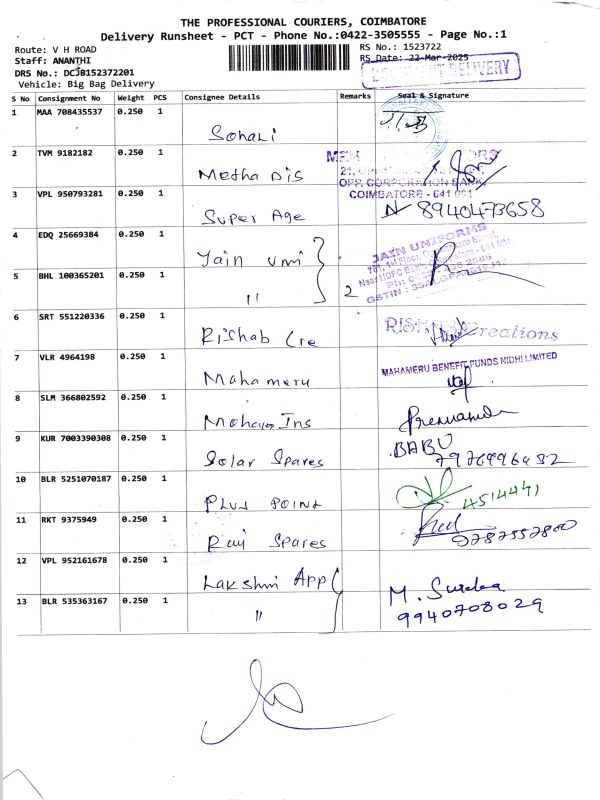 THE PROFESSIONAL COURIERS, COIMBATORE
Delivery Runsheet - PCT - Phone No.:0422-3505555 - Page No.:1
Route: V H ROAD
RS No.: 1523722
Staff: ANANTHI
RS Date: 22-Mar-2025
DRS No.: DCJB152372201
DELIVERY
Vehicle: Big Bag Delivery
S No Consignment No Weight PCS Consignee Details Remarks Seal & Signature
1 MAA 708435537 0.250 1 Sonali
2 TVM 9182182 0.250 1 Metha Dis
OPP. CORPORATION BANK
COIMBATORE - 641 001
3 VPL 950793281 0.250 1 Super Age 8940473658
4 EDQ 25669384 0.250 1 Jain Uni
JAIN UNIFORMS
5 BHL 100365201 0.250 1 " 2
GSTIN :
6 SRT 551220336 0.250 1 Rishab Cre
Creations
7 VLR 4964198 0.250 1 Mahameru
MAHAMERU BENEFIT FUNDS NIDHI LIMITED
8 SLM 366802592 0.250 1 Ins
9 KUR 7003390308 0.250 1 Solar Spares BABU
10 BLR 5251070187 0.250 1 Plus Point 4514441
11 RKT 9375949 0.250 1 Spares
12 VPL 952161678 0.250 1 Lakshmi App
13 BLR 535363167 0.250 1 " M.
9940708029